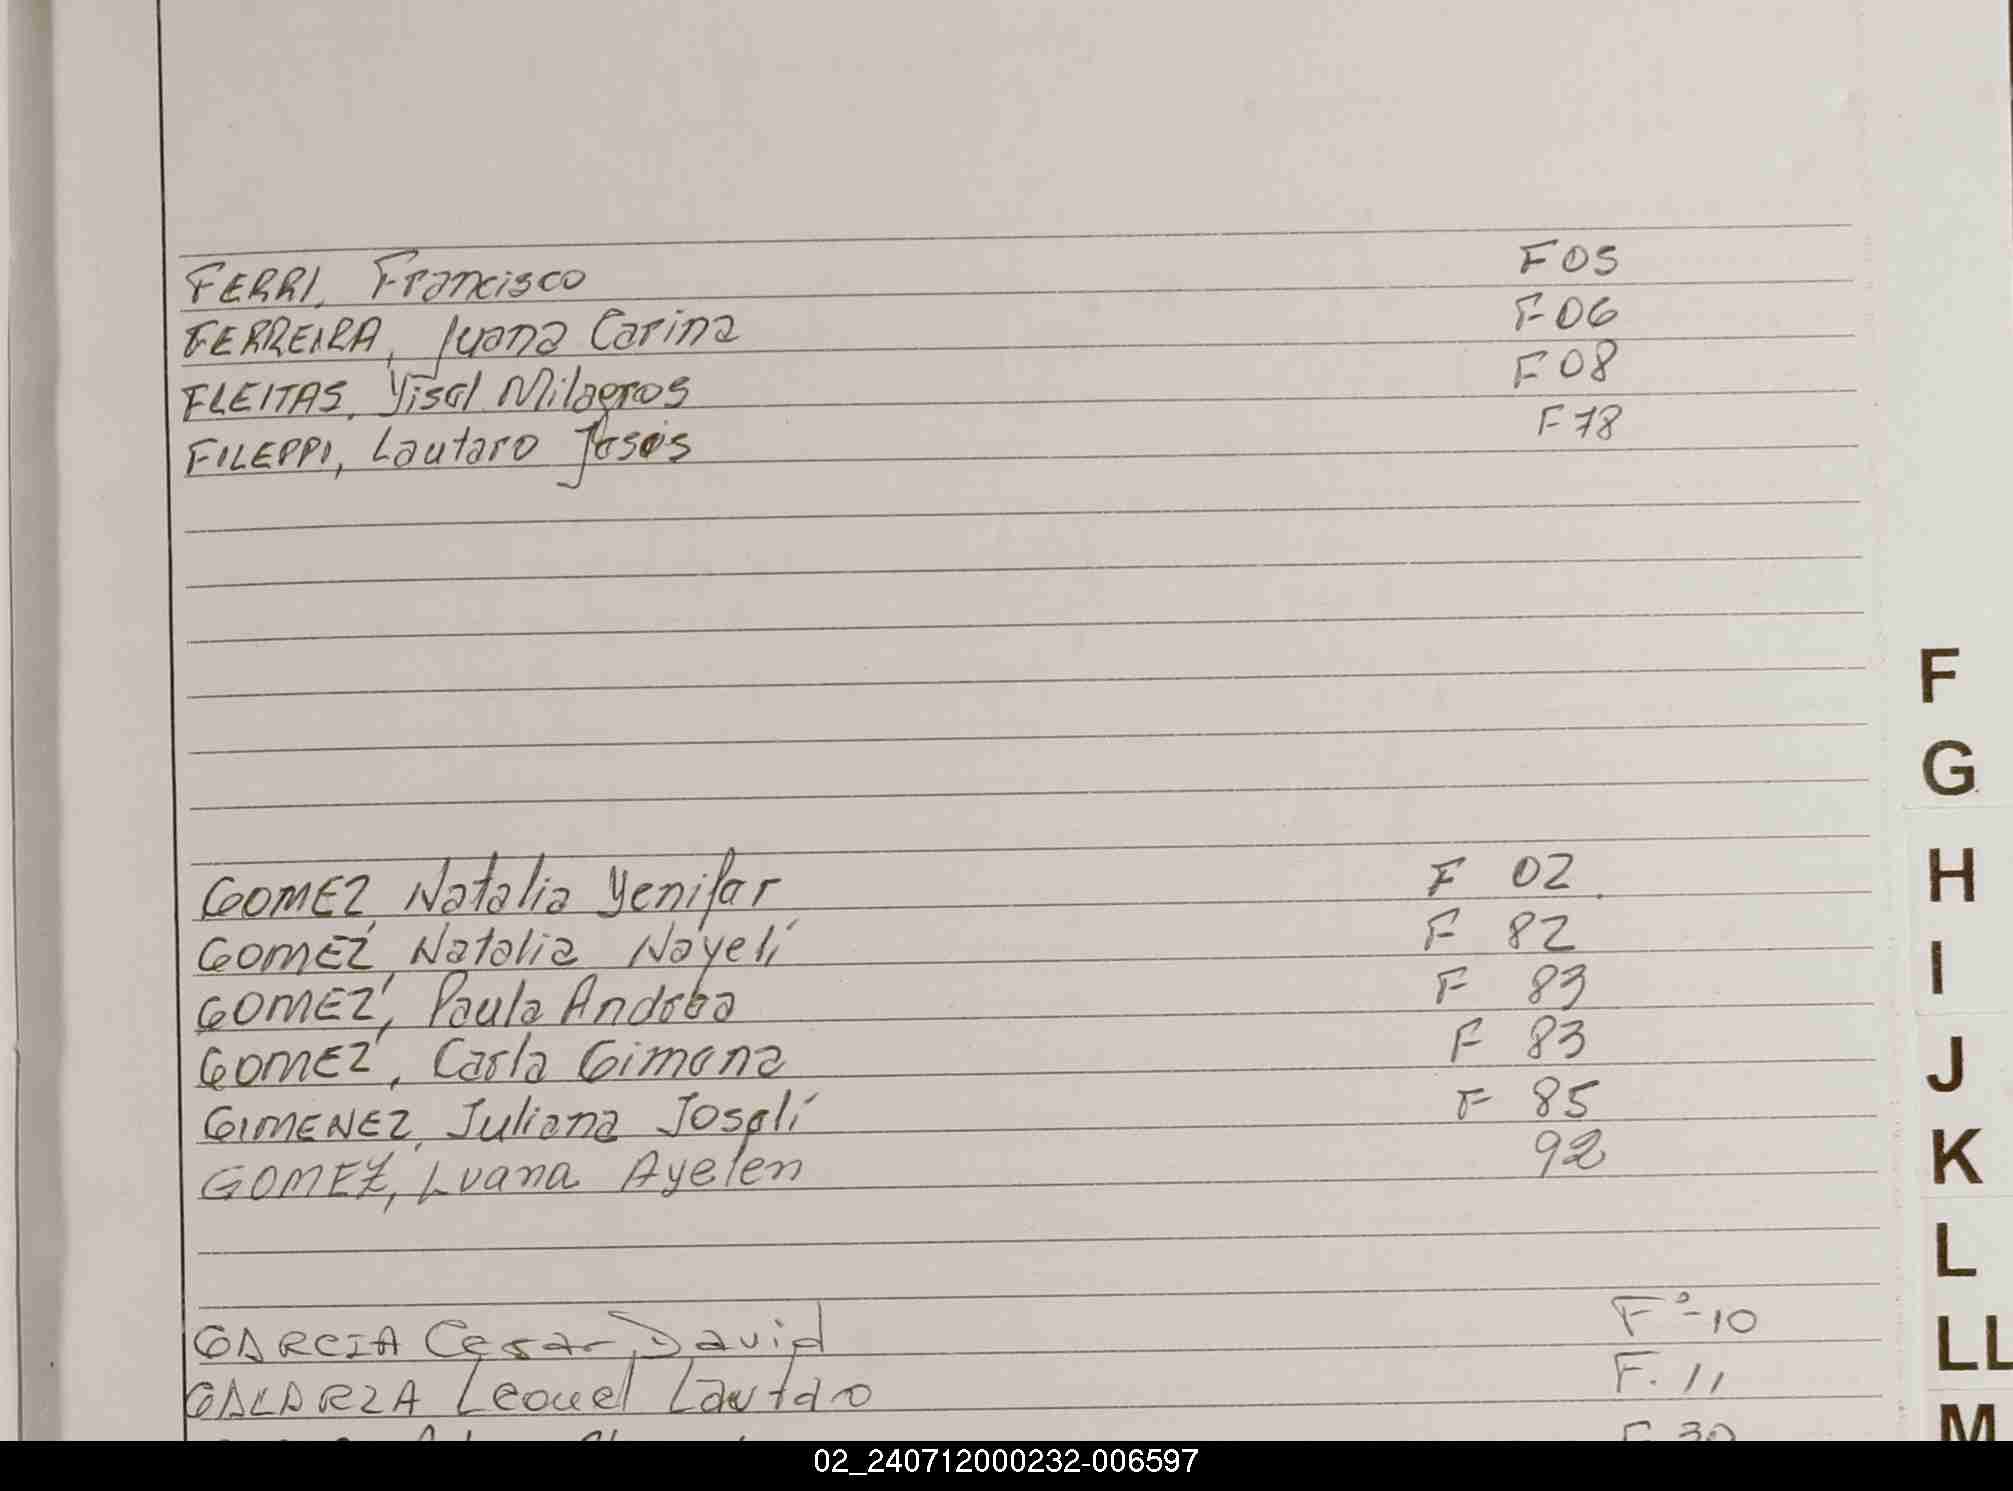 FERRI, Francisco F 05
FERREIRA, Juana Carina F 06
FLEITAS, Yisel Milagros F 08
FILEPPI, Lautaro Jesús F 78
F
G
GOMEZ, Natalia Yenifer F 02
H
GOMEZ, Natalia Nayelí F 82
I
GOMEZ, Paula Andrea F 83
GOMEZ, Carla Gimena F 83
J
GIMENEZ, Juliana Joselí F 85
GOMEZ, Luana Ayelen 92
K
L
GARCIA Cesar David Fº-10
LL
GALARZA Leonel Lautaro F. 11
M
F 30
02_240712000232-006597